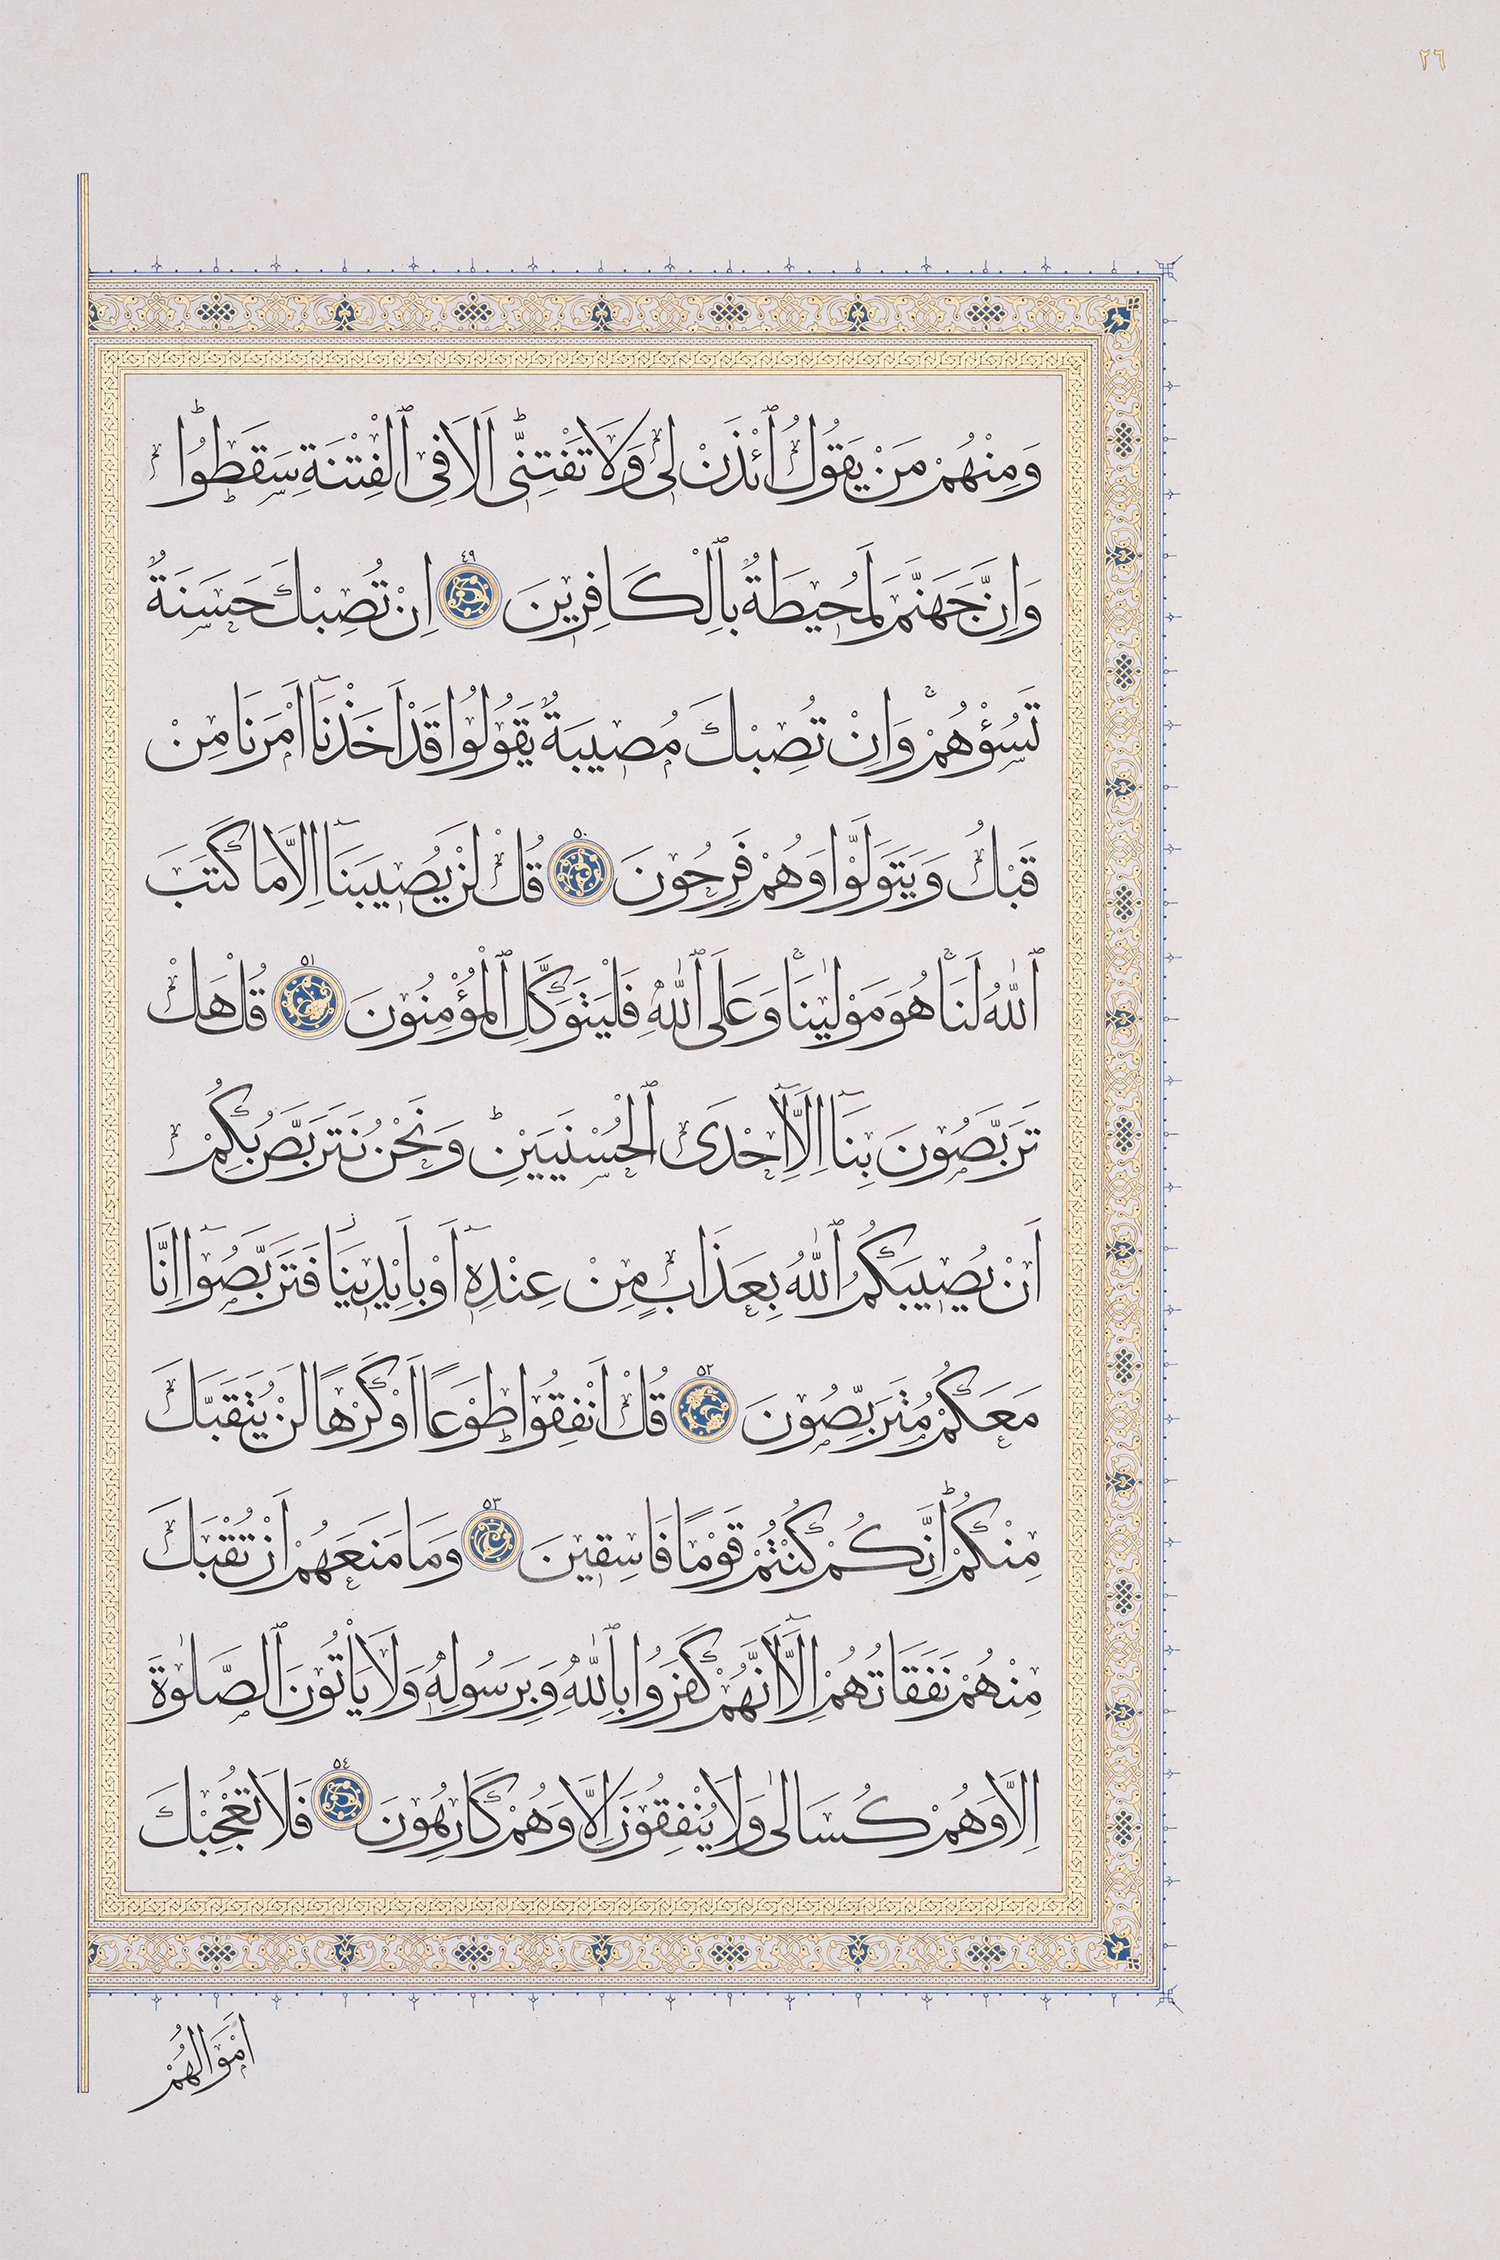 ٢٦
وَمِنْهُمْ مَنْ يَقُولُ ٱئْذَنْ لٖى وَلَا تَفْتِنّٖىؕ اَلَا فِى ٱلْفِتْنَةِ سَقَطُواؕ
وَاِنَّ جَهَنَّمَ لَمُحٖيطَةٌ بِالْكَافِرٖينَ ٤٩ اِنْ تُصِبْكَ حَسَنَةٌ
تَسُؤْهُمْۚ وَاِنْ تُصِبْكَ مُصٖيبَةٌ يَقُولُوا قَدْ اَخَذْنَآ اَمْرَنَا مِنْ
قَبْلُ وَيَتَوَلَّوْا وَهُمْ فَرِحُونَ ٥٠ قُلْ لَنْ يُصٖيبَنَآ اِلَّا مَا كَتَبَ
ٱللّٰهُ لَنَاۚ هُوَ مَوْلٰينَاۚ وَعَلَى ٱللّٰهِ فَلْيَتَوَكَّلِ ٱلْمُؤْمِنُونَ ٥١ قُلْ هَلْ
تَرَبَّصُونَ بِنَآ اِلَّآ اِحْدَى ٱلْحُسْنَيَيْنِؕ وَنَحْنُ نَتَرَبَّصُ بِكُمْ
اَنْ يُصٖيبَكُمُ ٱللّٰهُ بِعَذَابٍ مِنْ عِنْدِهٖٓ اَوْ بِاَيْدٖينَاؗ فَتَرَبَّصُوٓا اِنَّا
مَعَكُمْ مُتَرَبِّصُونَ ٥٢ قُلْ اَنْفِقُوا طَوْعًا اَوْ كَرْهًا لَنْ يُتَقَبَّلَ
مِنْكُمْؕ اِنَّكُمْ كُنْتُمْ قَوْمًا فَاسِقٖينَ ٥٣ وَمَا مَنَعَهُمْ اَنْ تُقْبَلَ
مِنْهُمْ نَفَقَاتُهُمْ اِلَّآ اَنَّهُمْ كَفَرُوا بِٱللّٰهِ وَبِرَسُولِهٖ وَلَا يَاْتُونَ ٱلصَّلٰوةَ
اِلَّا وَهُمْ كُسَالٰى وَلَا يُنْفِقُونَ اِلَّا وَهُمْ كَارِهُونَ ٥٤ فَلَا تُعْجِبْكَ
اَمْوَالُهُمْ